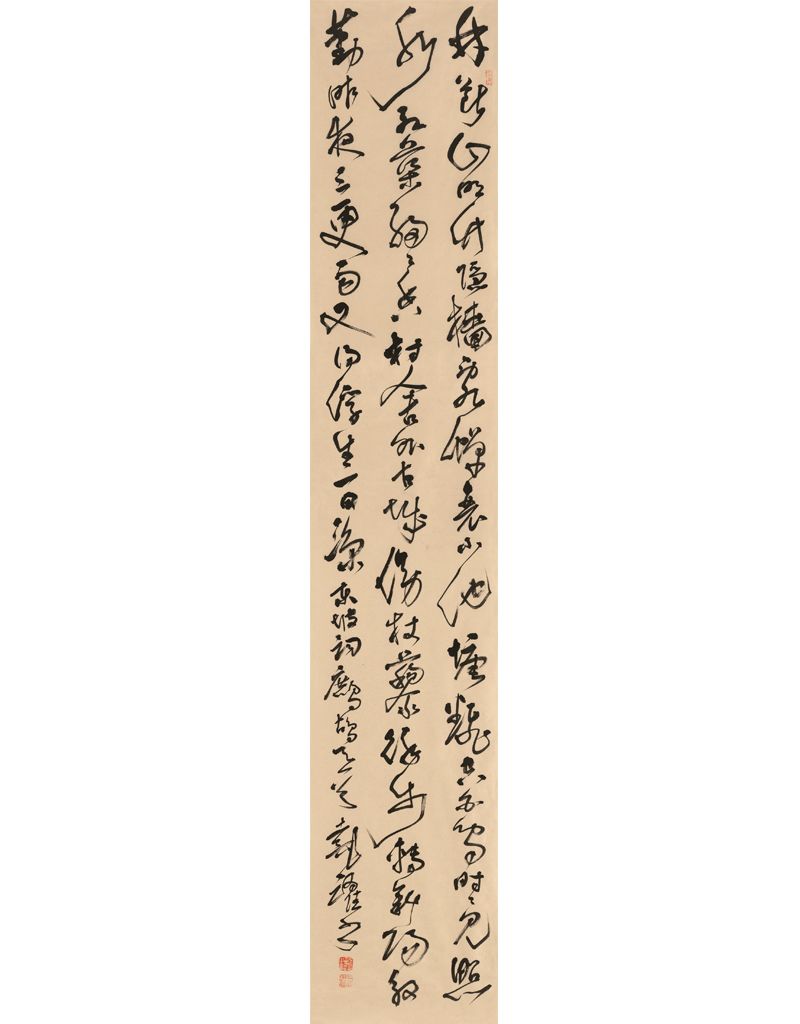 林斷山明竹隱牆亂蟬衰小池塘翻空白鳥時〻見照
水紅蕖細〻香村舍外古城傍杖藜徐步轉斜陽殷
勤昨夜三更雨又得浮生一日涼東坡詞鷓鴣天 書